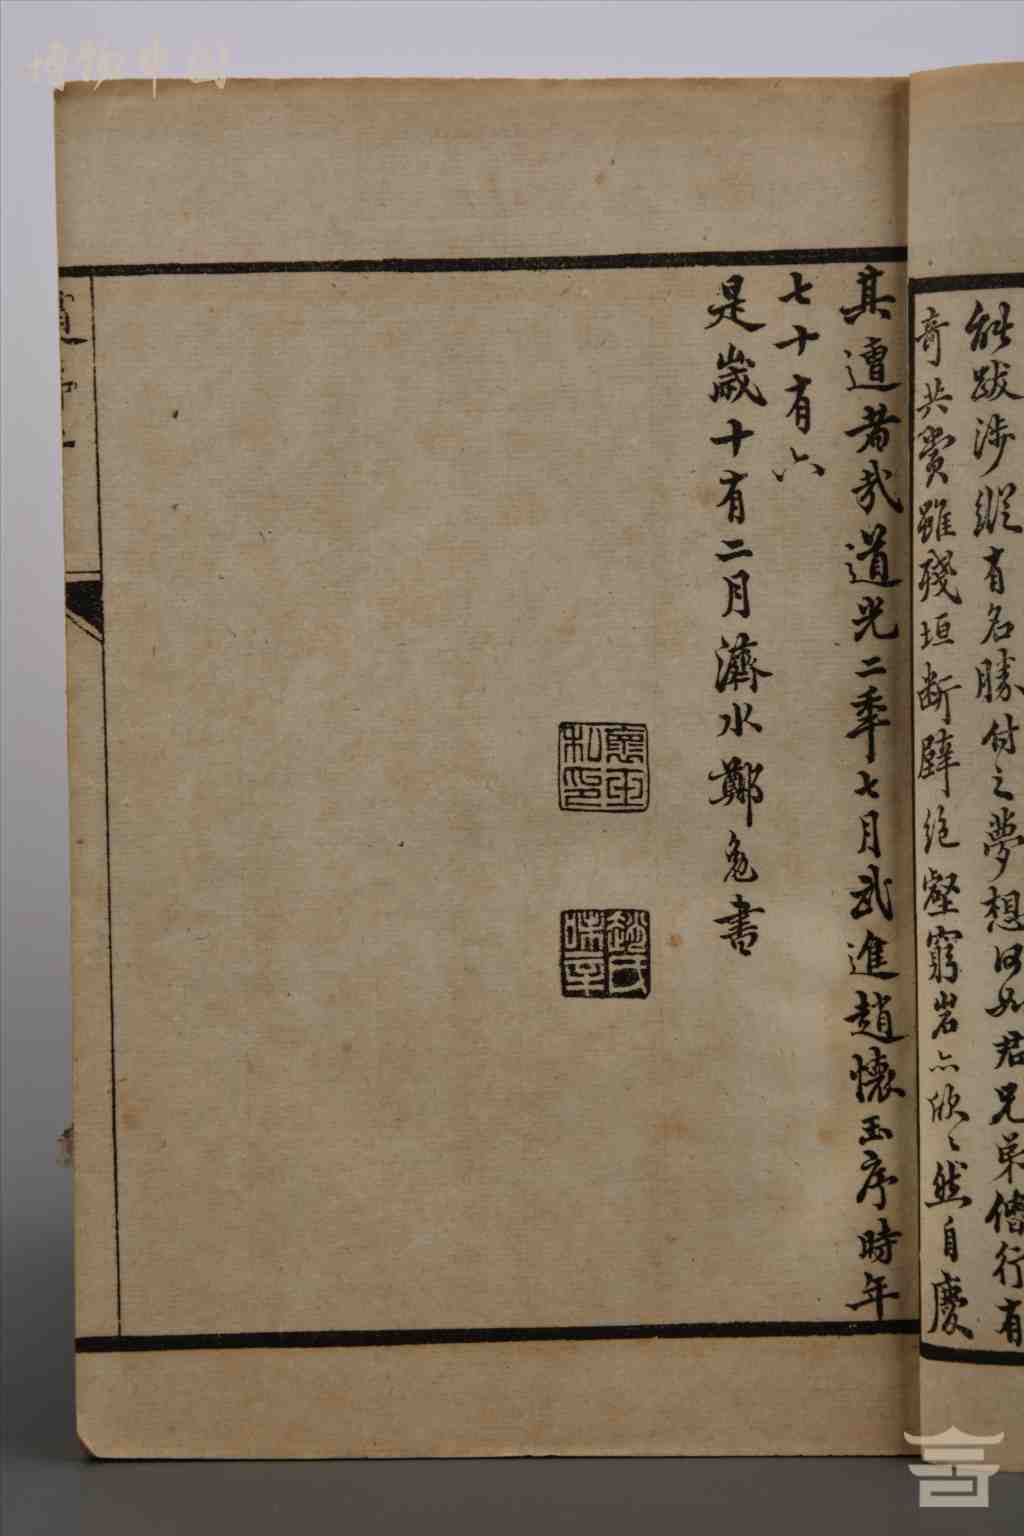 能跋涉縱有名勝付之夢想何如君兄弟偕行有
奇共賞雖殘垣斷壁絕壑窮岩亦欣〻然自慶
其遭者哉道光二年七月武進趙懷玉序時年
七十有六
是歲十有二月濟水鄭
書
懷玉
私印
趙氏
味辛
博物中國